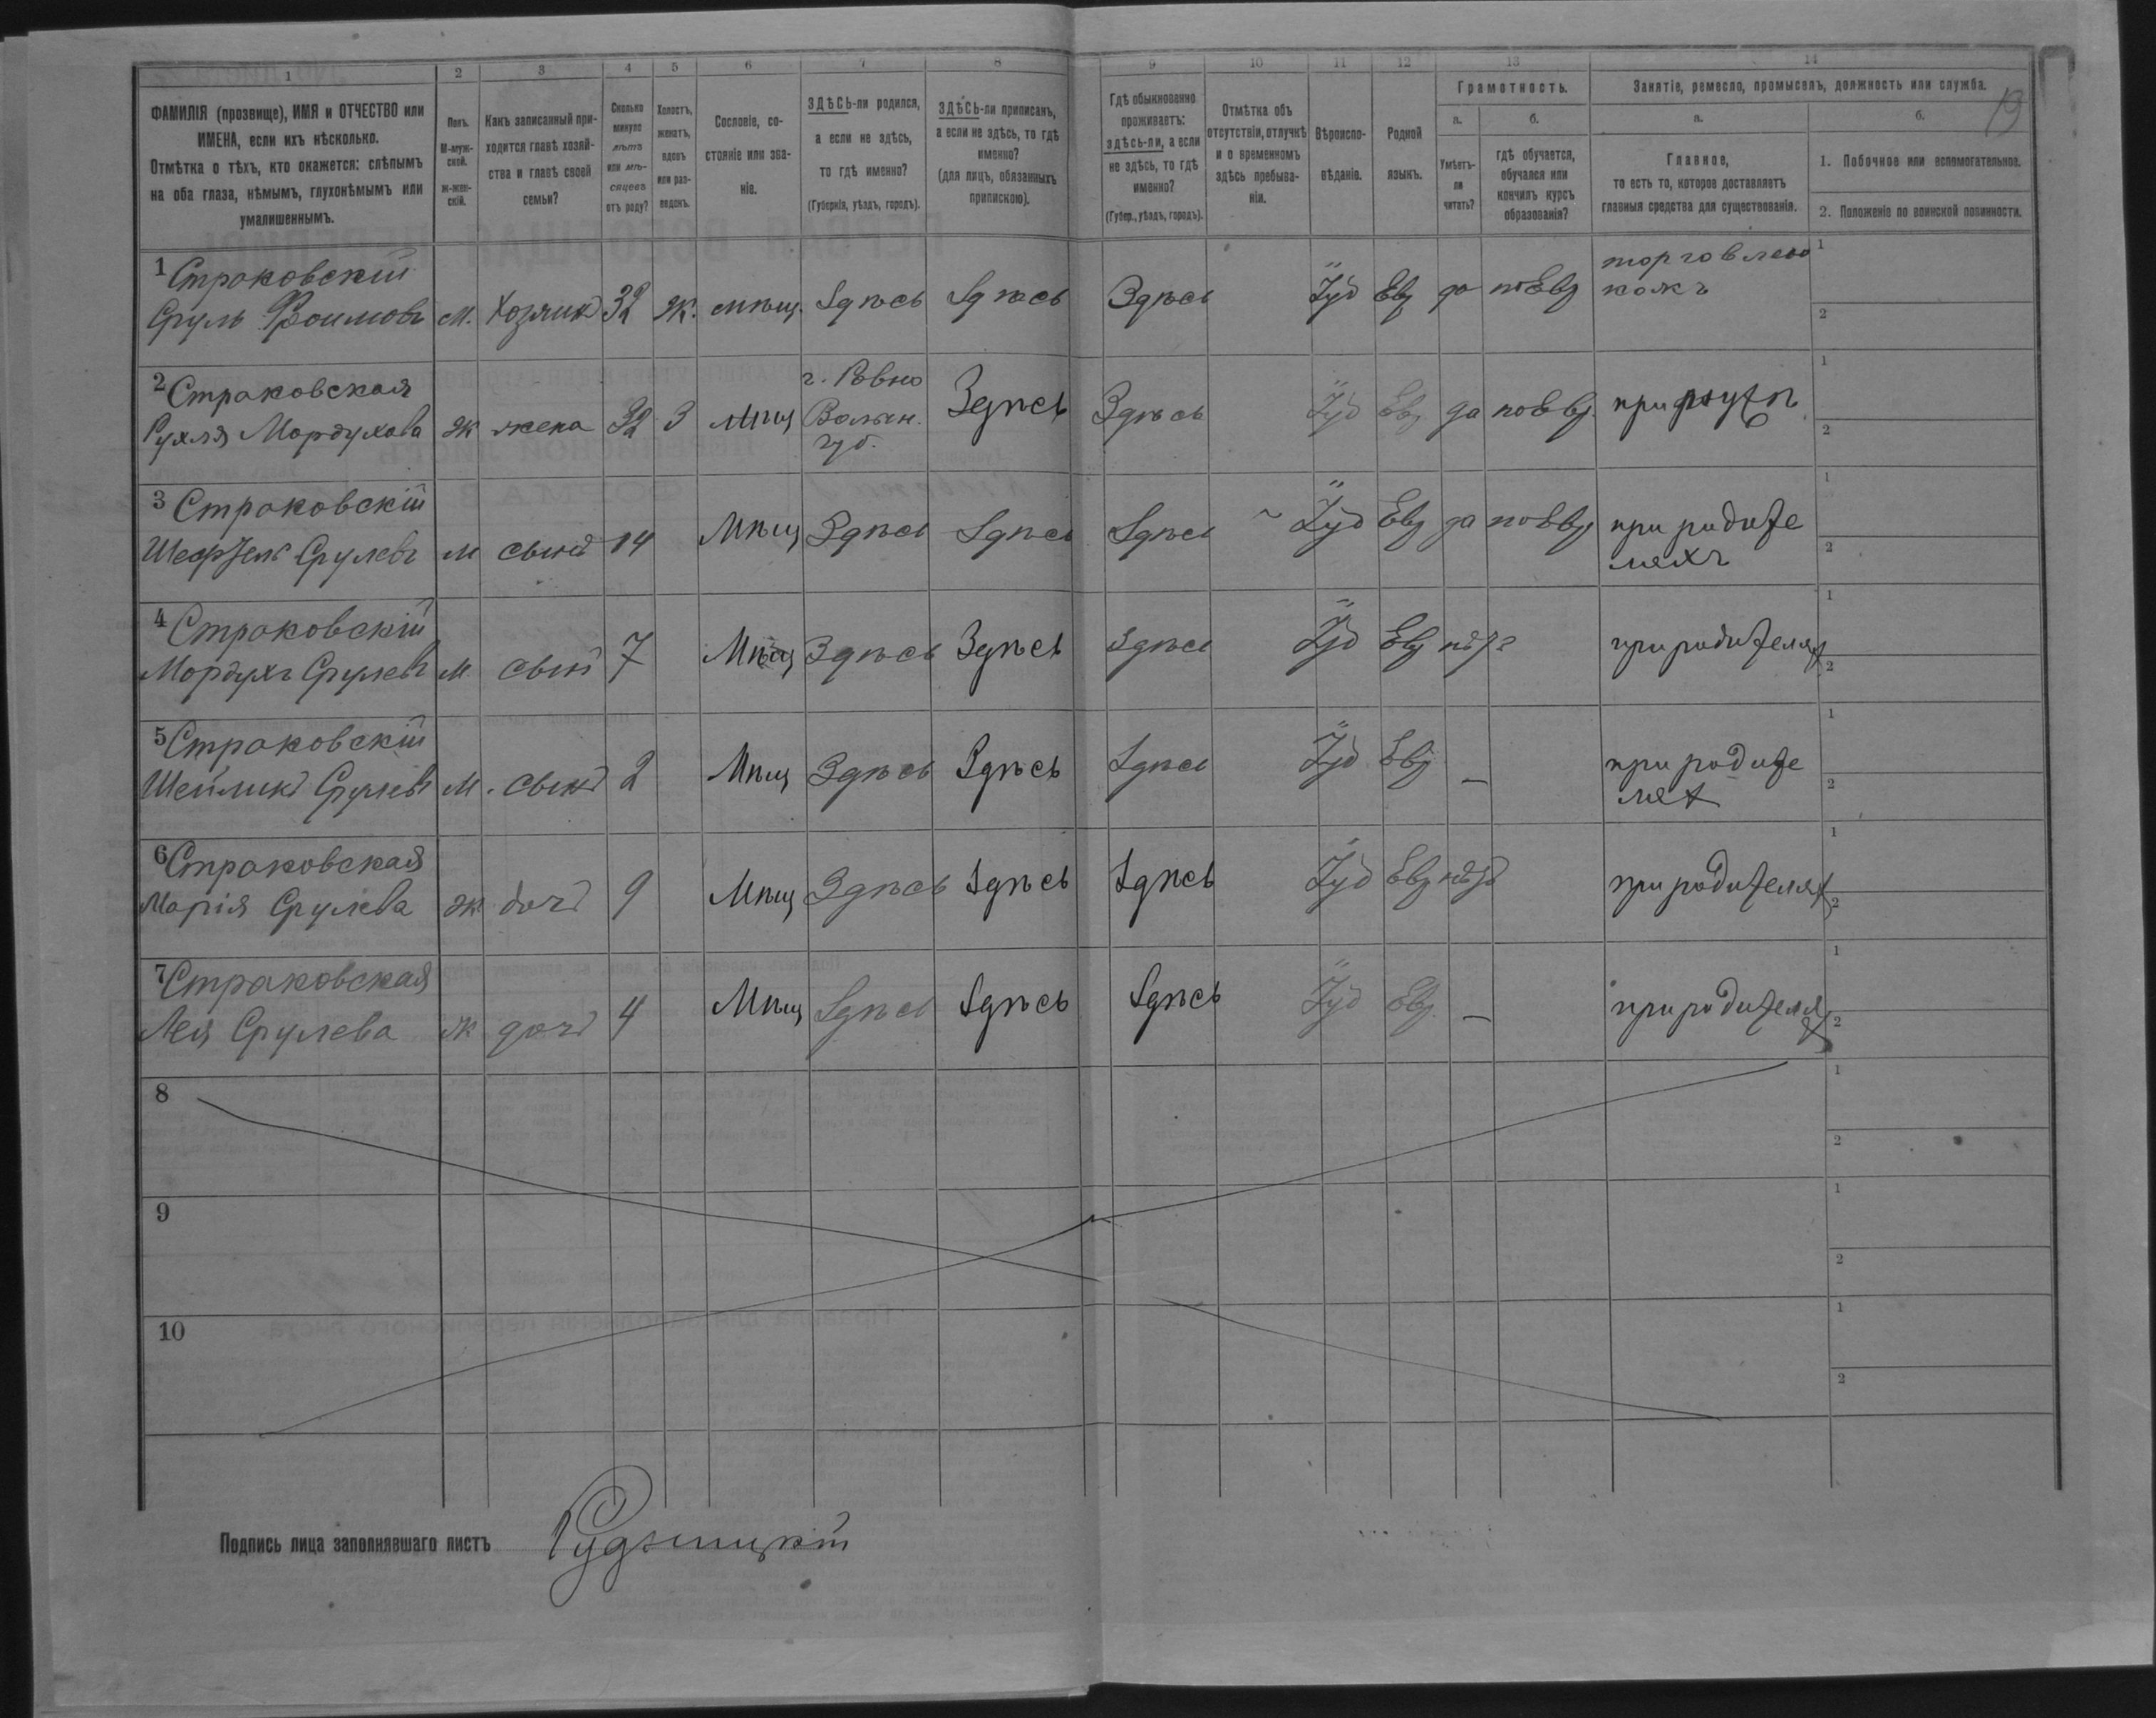 1
ФАМИЛІЯ (прозвище), ИМЯ и ОТЧЕСТВО или
ИМЕНА, если ихъ нѣсколько.
Отмѣтка о тѣхъ, кто окажется: слѣпымъ
на оба глаза, нѣмымъ, глухонѣмымъ или
умалишеннымъ.
2
Полъ.
М-муж-
ской.
ж-жен-
скій.
3
Какъ записанный при-
ходится главѣ хозяй-
ства и главѣ своей
семьи?
4
Сколько
минуло
лѣтъ
или мѣ-
сяцевъ
отъ роду?
5
Холостъ,
женатъ,
вдовъ
или раз-
веденъ.
6
Сословіе, со-
стояніе или зва-
ніе.
7
ЗДѢСЬ-ли родился,
а если не здѣсь,
то гдѣ именно?
(Губернія, уѣздъ, городъ).
8
ЗДѢСЬ-ли приписанъ,
а если не здѣсь, то гдѣ
именно?
(для лицъ, обязанныхъ
припискою).
9
Гдѣ обыкновенно
проживаетъ:
здѣсь-ли, а если
не здѣсь, то гдѣ
именно?
(Губер., уѣздъ, городъ).
10
Отмѣтка объ
отсутствіи, отлучкѣ
и о временномъ
здѣсь пребыва-
ніи.
11
Вѣроиспо-
вѣданіе.
12
Родной
языкъ.
13
Грамотность.
а.
Умѣетъ-
ли
читать?
б.
гдѣ обучается,
обучался или
кончилъ курсъ
образованія?
14
Занятіе, ремесло, промыселъ, должность или служба.
19
а.
Главное,
то есть то, которое доставляетъ
главныя средства для существованія.
б.
1. Побочное или вспомогательное.
2. Положеніе по воинской повинности.
1 Страковскій
Сруль Фроимовъ м. Хозяинъ 32 ж. мѣщ. Здѣсь Здѣсь Здѣсь Іуд Евр да по Евр торговлею
кожъ
1
2
2 Страковская
Рухля Мордухова ж жена 32 З мѣщ г. Ровно
Волын.
губ.
Здѣсь Здѣсь Іуд Евр да по Евр. при мужѣ
1
2
3 Страковскій
Шефтель Срулевъ м сынъ 14 Мѣщ Здѣсь Здѣсь Здѣсь Іуд Евр да по Евр при родите
ляхъ
1
2
4 Страковскій
Мордухъ Срулевъ м сынъ 7 Мѣщ Здѣсь Здѣсь Здѣсь Іуд Евр нѣтъ при родителях
1
2
5 Страковскій
Шейликъ Срулевъ м. сынъ 2 Мѣщ Здѣсь Здѣсь Здѣсь Іуд Евр — при родите
лях
1
2
6 Страковская
Марія Срулева ж дочь 9 Мѣщ Здѣсь Здѣсь Здѣсь Іуд Евр нѣтъ при родителях
1
2
7 Страковская
Лея Срулева ж дочь 4 Мѣщ Здѣсь Здѣсь Здѣсь Іуд Евр. — при родителя
х
1
2
8
1
2
9
1
2
10
1
2
Подпись лица заполнявшаго листъ